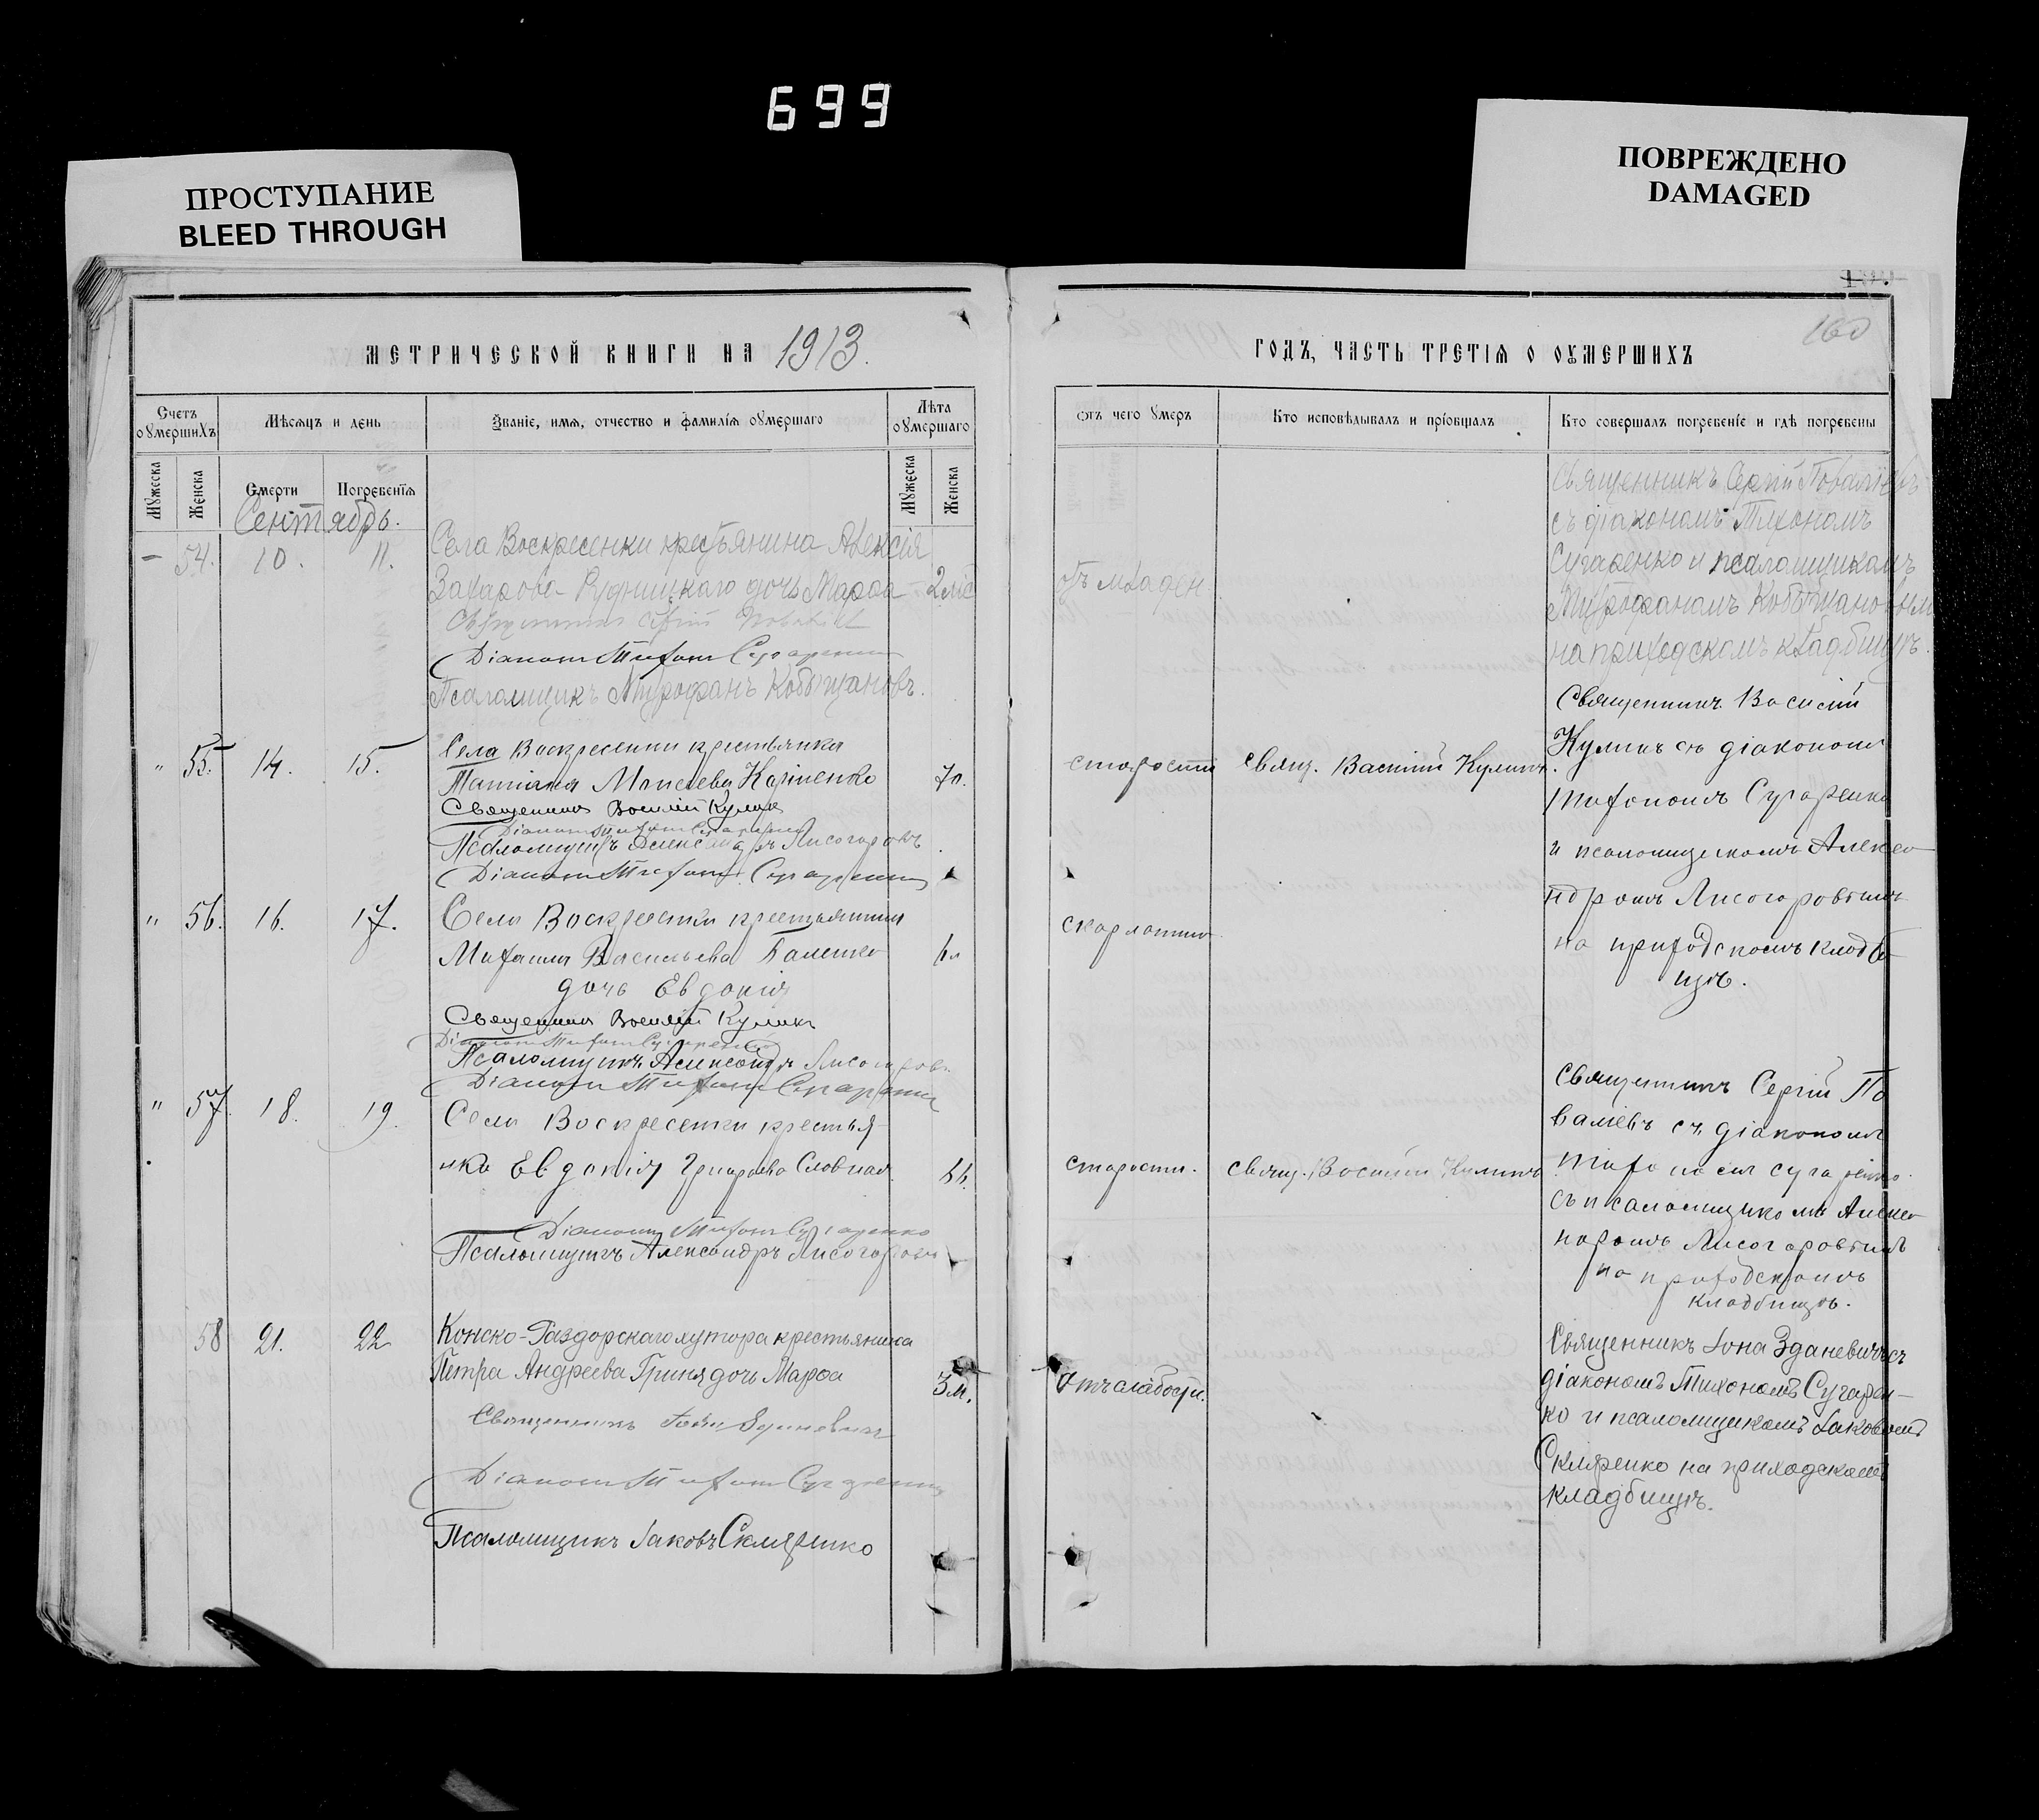 699
ПРОСТУПАНИЕ
BLEED THROUGH
ПОВРЕЖДЕНО
DAMAGED
МЕТРИЧЕСКОЙ КНИГИ НА 1913.
Счетъ оумершихъ
Мѣсяцъ и день
Званіе, имя, отчество и фамилія оумершаго
Лѣта оумершаго
Мужеска
Женска
Смерти
Погребенія
Мужеска
Женска
Сентябрь.
— 54. 10. 11.
Села Воскресенки крестьянина Алексія
Захарова Рудницкаго дочь Марѳа 2 мѣс
Священникъ Сергій
Діаконъ Тихонъ Сугаренко
Псаломщикъ Митрофанъ Кобыщановъ.
" 55. 14. 15.
Села Воскресенки крестьянка
Татіана Моисеева 70.
Священникъ Василій Куликъ
Діаконъ Тихонъ Сугаренко
Псаломщикъ Александръ Лисогоровъ
Діаконъ Тихонъ Сугаренко
" 56. 16. 17.
Села Воскресенки крестьянина
Михаила Васильева
дочь Евдокія
Священникъ Василій Куликъ
Діаконъ Тихонъ Сугаренко
Псаломщикъ Александръ Лисогоровъ
Діаконъ Тихонъ Сугаренко
" 57. 18. 19.
Села Воскресенки крестья-
нка Евдокія Григорьева
Діаконъ Тихонъ Сугаренко
Псаломщикъ Александръ Лисогоровъ
58 21. 22
Конско-Раздорскаго хутора крестьянина
Петра Андреева Гриня дочь Марѳа 3 м.
Священникъ Іона Зданевичъ
Діаконъ Тихонъ Сугаренко
Псаломщикъ Іаковъ Скляренко
160
ГОДЪ, ЧАСТЬ ТРЕТІЯ О ОУМЕРШИХЪ
Отъ чего умеръ
Кто исповѣдывалъ и пріобщалъ
Кто совершалъ погребеніе и гдѣ погребены
Священникъ Сергій Поваліевъ
съ діакономъ Тихономъ
Сугаренко и псаломщикомъ
Митрофаномъ Кобыщановымъ
на приходскомъ кладбищѣ.
отъ младен.
Священникъ Василій
Куликъ съ діакономъ
Тихономъ Сугаренко
и псаломщикомъ Алекса
ндромъ Лисогоровымъ
на приходскомъ кладб
ищѣ.
старости свящ. Василій Куликъ.
скарлатина
Священникъ Сергій По
валіевъ съ діакономъ
Тихономъ Сугаренко
съ псаломщикомъ Алекса
ндромъ Лисогоровымъ
на приходскомъ
кладбищѣ.
старости. свящ. Василій Куликъ
Священникъ Іона Зданевичъ съ
діакономъ Тихономъ Сугарен-
ко и псаломщикомъ Іаковомъ
Скляренко на приходскомъ
кладбищѣ.
Отъ слабости.